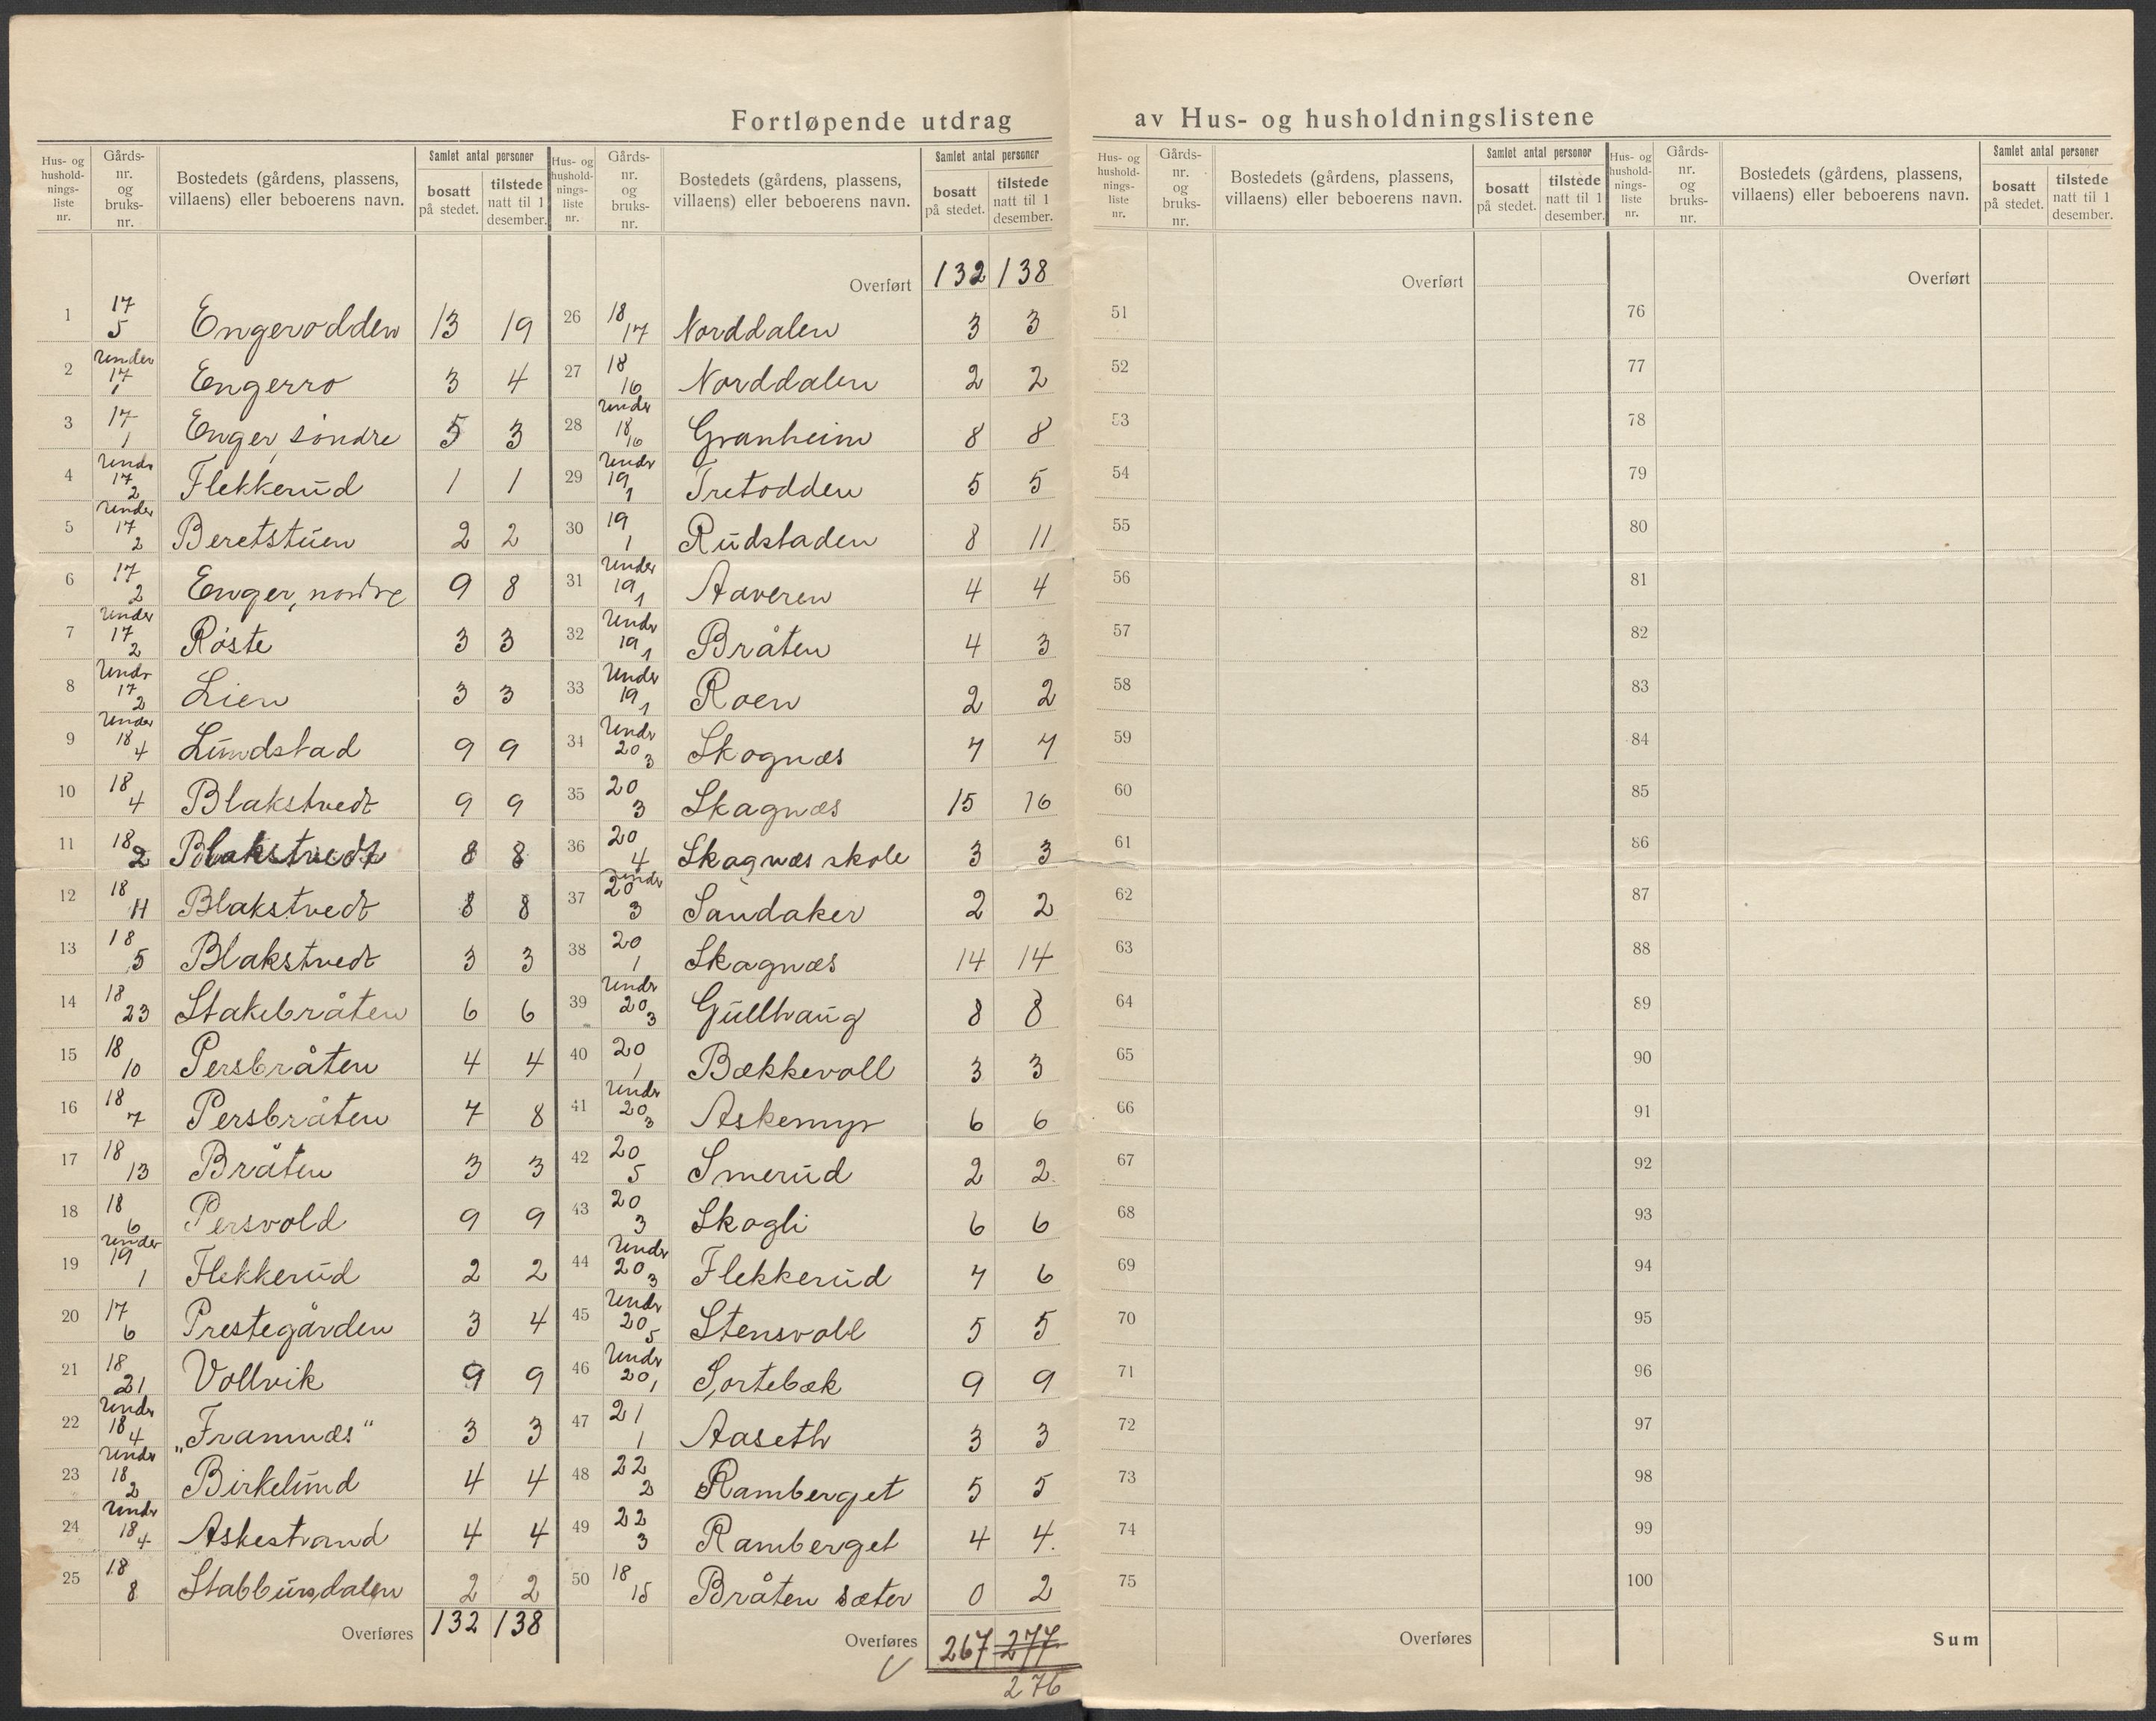 Fortløpende utdrag av Hus- og husholdningslistene
Hus- og husholdnings-liste nr. Gårds-nr. og bruks-nr. Bostedets (gårdens, plassens, villaens) eller beboerens navn. Samlet antal personer bosatt på stedet. tilstede natt til 1 desember.
1 17 5 Engerodden 13 19
2 Under 17 1 Engerro 3 4
3 17 1 Enger, søndre 5 3
4 Undr 17 2 Flekkerud 1 1
5 Under 17 2 Beretstuen 2 2
6 17 2 Enger, nordre 9 8
7 Under 17 2 Røste 3 3
8 Undr 17 2 Lien 3 3
9 Under 18 4 Lundstad 9 9
10 18 4 Blakstvedt 9 9
11 18 2 Blakstvedt 8 8
12 18 11 Blakstvedt 8 8
13 18 5 Blakstvedt 3 3
14 18 23 Stakebråten 6 6
15 18 10 Persbråten 4 4
16 18 7 Persbråten 7 8
17 18 13 Bråten 3 3
18 18 6 Persvold 9 9
19 Under 19 1 Flekkerud 2 2
20 17 6 Prestegården 3 4
21 18 21 Vollvik 9 9
22 Undr 18 4 „Framnæs" 3 3
23 Undr 18 2 Birkelund 4 4
24 Undr 18 4 Askestrand 4 4
25 18 8 Stabbursdalen 2 2
Overføres 132 138
Hus- og husholdnings-liste nr. Gårds-nr. og bruks-nr. Bostedets (gårdens, plassens, villaens) eller beboerens navn. Samlet antal personer bosatt på stedet. tilstede natt til 1 desember.
Overført 132 138
26 18 17 Norddalen 3 3
27 18 16 Norddalen 2 2
28 Undr 18 16 Granheim 8 8
29 Undr 19 1 Tretodden 5 5
30 19 1 Rudstaden 8 11
31 Under 19 1 Aaveren 4 4
32 Undr 19 1 Bråten 4 3
33 Undr 19 1 Roen 2 2
34 Undr 20 3 Skognæs 7 7
35 20 3 Skagnæs 15 16
36 20 4 Skagnæs skole 3 3
37 Undr 20 3 Sandaker 2 2
38 20 1 Skagnæs 14 14
39 Undr 20 3 Gullhaug 8 8
40 20 1 Bækkevoll 3 3
41 Undr 20 3 Askemyr 6 6
42 20 5 Smerud 2 2
43 20 3 Skogli 6 6
44 Undr 20 3 Flekkerud 7 6
45 Undr 20 5 Stensvoll 5 5
46 Undr 20 1 Sortebæk 9 9
47 21 1 Aaseth 3 3
48 22 2 Ramberget 5 5
49 22 3 Ramberget 4 4.
50 18 15 Bråten sæter 0 2
Overføres 267 277
276
Hus- og husholdnings-liste nr. Gårds-nr. og bruks-nr. Bostedets (gårdens, plassens, villaens) eller beboerens navn. Samlet antal personer bosatt på stedet. tilstede natt til 1 desember.
Overført
51
52
53
54
55
56
57
58
59
60
61
62
63
64
65
66
67
68
69
70
71
72
73
74
75
Overføres
Hus- og husholdnings-liste nr. Gårds-nr. og bruks-nr. Bostedets (gårdens, plassens, villaens) eller beboerens navn. Samlet antal personer bosatt på stedet. tilstede natt til 1 desember.
Overført
76
77
78
79
80
81
82
83
84
85
86
87
88
89
90
91
92
93
94
95
96
97
98
99
100
Sum